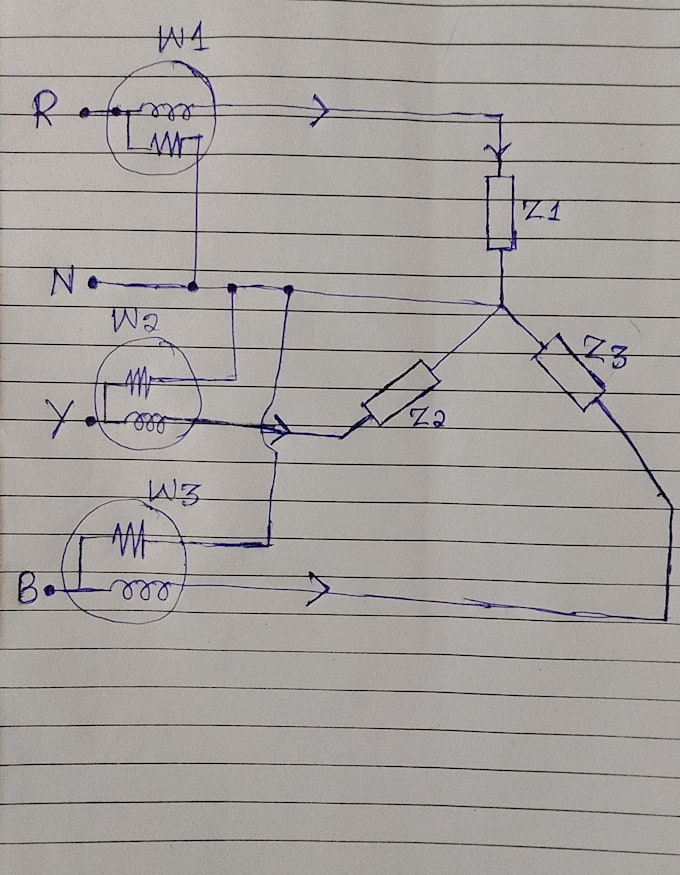 W1
R
Z1
N
W2
Z3
Y
Z2
W3
B